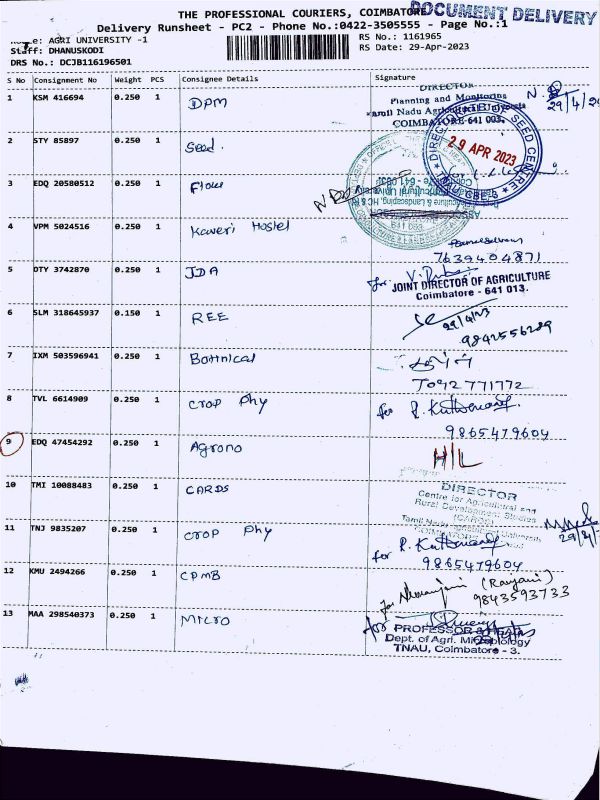 THE PROFESSIONAL COURIERS, COIMBATORE
DOCUMENT DELIVERY
Delivery Runsheet - PC2 - Phone No.:0422-3505555 - Page No.:1
AGRI UNIVERSITY -1
RS No.: 1161965
Staff: DHANUSKODI
RS Date: 29-Apr-2023
DRS No.: DCJB116196501
S No Consignment No Weight PCS Consignee Details Signature
1 KSM 416694 0.250 1 DPM
DIRECTOR
Planning and Monitoring
Tamil Nadu Agricultural University
COIMBATORE-641 003.
29/4/20
2 STY 85897 0.250 1 Seed.
SEED CENTRE
29 APR 2023
TNAU, CBE-3
3 EDQ 20580512 0.250 1 Flow
4 VPM 5024516 0.250 1 Kaveri Hostel
7639404871
5 DTY 3742870 0.250 1 JDA
for
JOINT DIRECTOR OF AGRICULTURE
Coimbatore - 641 013.
6 SLM 318645937 0.150 1 REE
29/4/23
9842556289
7 IXM 503596941 0.250 1 Botnical
7092 771772
8 TVL 6614909 0.250 1 Crop Phy
for
9865479604
9 EDQ 47454292 0.250 1 Agrono
H/L
10 TMI 10088483 0.250 1 CARDS
DIRECTOR
Centre for Agricultural and
Rural Development Studies
(CARDS)
Tamil Nadu Agricultural University
29/4/
11 TNJ 9835207 0.250 1 Crop Phy
for
9865479604
12 KMU 2494266 0.250 1 CPMB
for (Ranjani)
9843593733
13 MAA 298540373 0.250 1 Micro
for
PROFESSOR & HEAD
Dept. of Agri. Microbiology
TNAU, Coimbatore - 3.